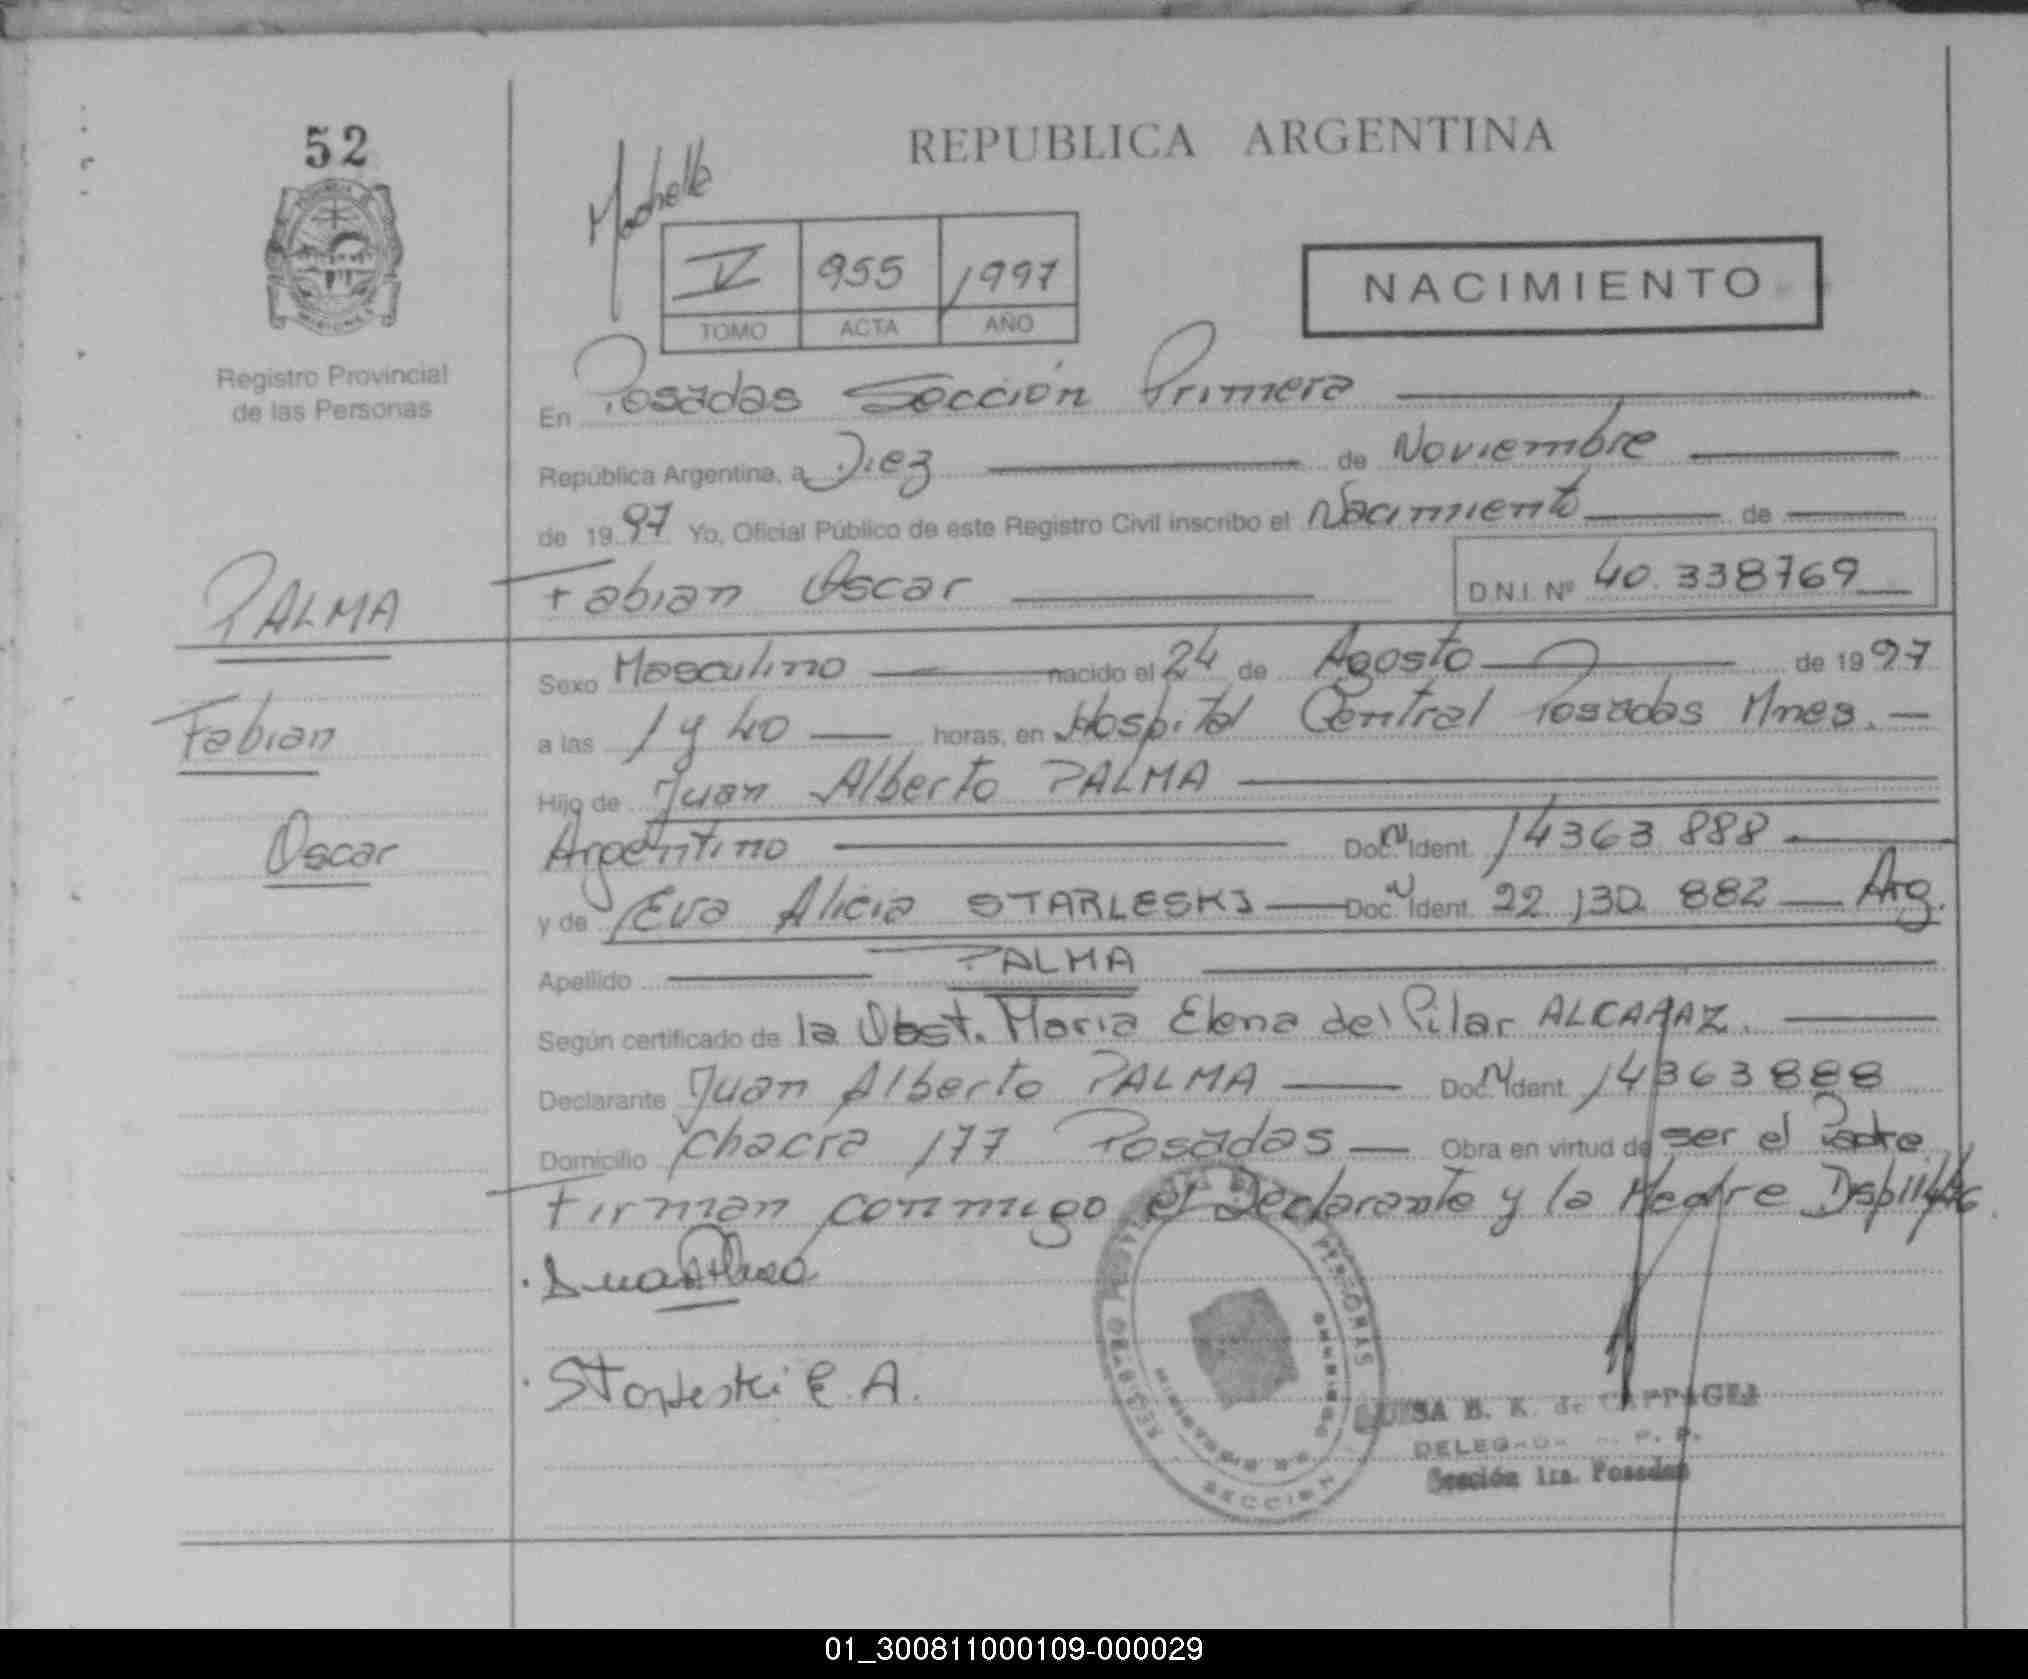 52
REPUBLICA ARGENTINA
V 955 1997
TOMO ACTA AÑO
NACIMIENTO
Registro Provincial
de las Personas
En Posadas Sección Primera
República Argentina, a Diez de Noviembre
de 1997 Yo, Oficial Público de este Registro Civil inscribo el Nacimiento de
Fabian Oscar D.N.I. Nº 40.338769
PALMA
Fabian
Oscar
Sexo Masculino nacido el 24 de Agosto de 1997
a las 1 y 40 horas, en Hospital Central Posadas Mnes.
Hijo de Juan Alberto PALMA
Argentino Doc. N Ident. 14363 888
y de Eva Alicia STARLESKI Doc. N Ident. 22.130.882 Arg.
Apellido PALMA
Según certificado de la Obst. Maria Elena del Pilar ALCARAZ.
Declarante Juan Alberto PALMA Doc. N Ident. 14363888
Domicilio Chacra 177 Posadas Obra en virtud de ser el Padre
Firman conmigo el Declarante y la Madre
E. A.
REGISTRO PERSONAS
MISIONES
SECCION
LUISA B. K. de
DELEGADA
Sección 1ra. Posadas
01_300811000109-000029